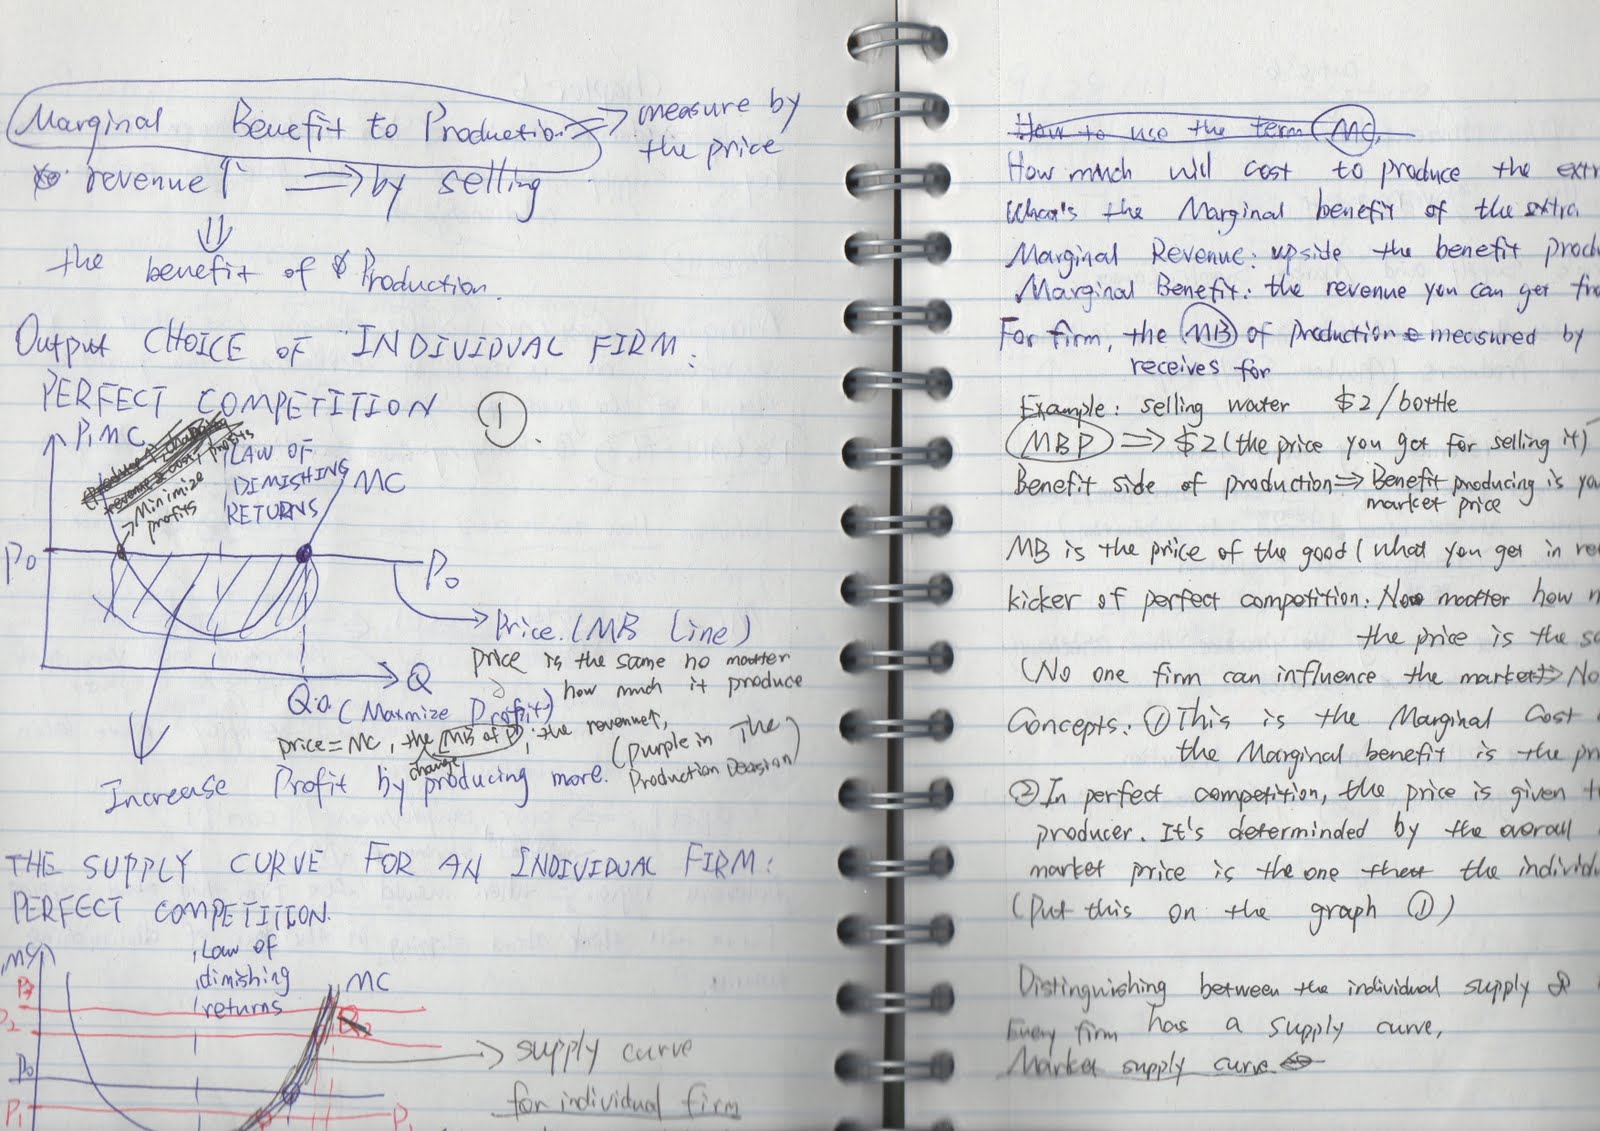 Marginal Benefit to Production => measure by
the price
revenue ↑ => by selling
the benefit of Production.
Output CHOICE OF INDIVIDUAL FIRM:
PERFECT COMPETITION ①.
P, MC
revenue & cost
Minimize
profits
LAW OF
DIMISHING
RETURNS
MC
P0
P0
Price. (MB Line)
price is the same no matter
how much it produce
Q
Q0 (Maxmize Profit)
price = MC, the MB of P, the revenue↑,
change
(purple in The
Production Decision)
Increase Profit by producing more.
THE SUPPLY CURVE FOR AN INDIVIDUAL FIRM:
PERFECT COMPETITION.
MC
Law of
dimishing
returns
MC
P3
P2
P0
P1
P1
supply curve
for individual firm
How to use the term MC.
How much will cost to produce the extr
What's the Marginal benefit of the extra
Marginal Revenue: upside the benefit produ
Marginal Benefit: the revenue you can get fro
For firm, the MB of production measured by
receives for
Example: selling water $2/bottle
MBP => $2 (the price you get for selling it)
Benefit side of production => Benefit producing is yo
market price
MB is the price of the good (what you get in re
kicker of perfect competition: No matter how m
the price is the sa
(No one firm can influence the market => No
Concepts: ① This is the Marginal Cost
the Marginal benefit is the pr
② In perfect competition, the price is given t
producer. It's determinded by the overall
market price is the one that the individu
(Put this on the graph ①)
Distinguishing between the individual supply &
Every firm has a supply curve,
Market supply curve